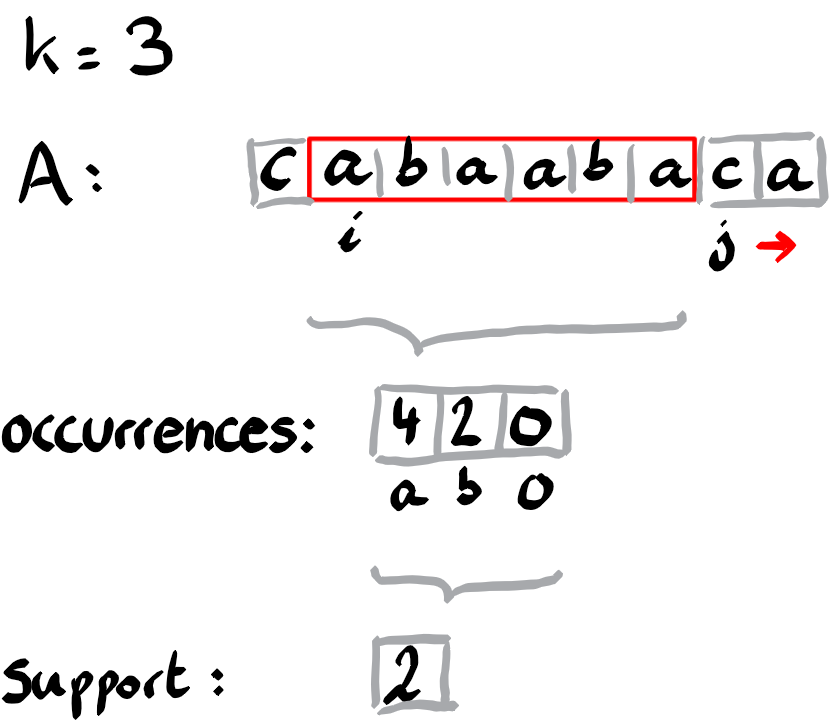 k = 3
A: c a b a a b a c a
i j →
occurrences: 4 2 0
a b o
support: 2